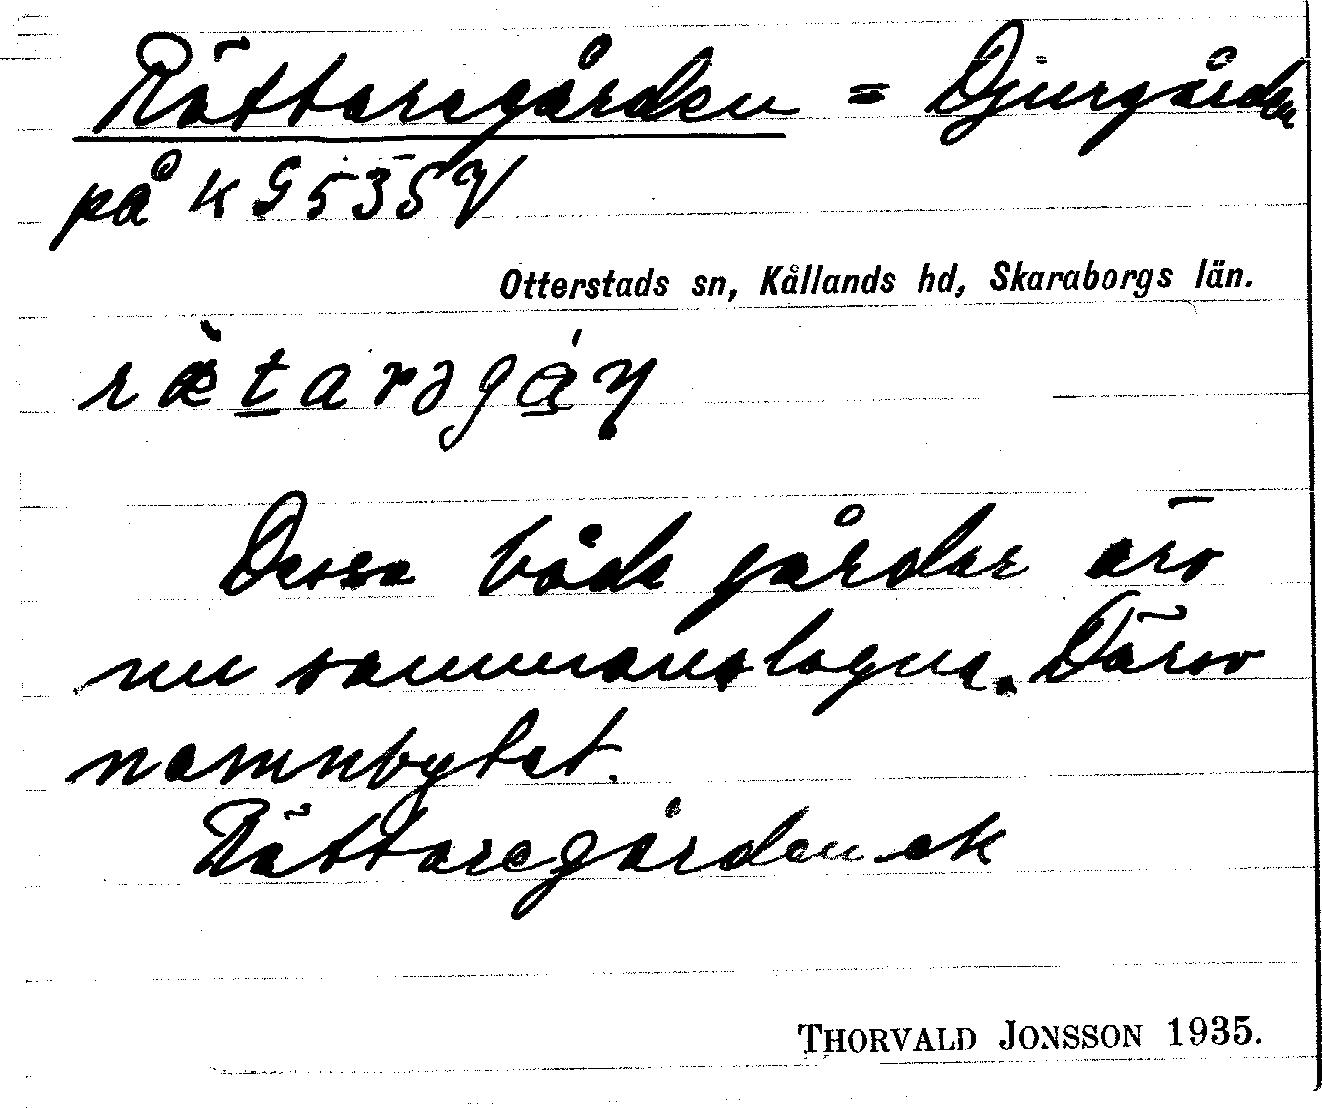 Rättaregården = Djurgården
på K G 5 3 S V
Otterstads sn, Kållands hd, Skaraborgs län.
ræ̀tarəgån
Dessa både gårdar äro
nu sammanslagna. Därav
namnbytet.
Rättaregården ek
THORVALD JONSSON 1935.